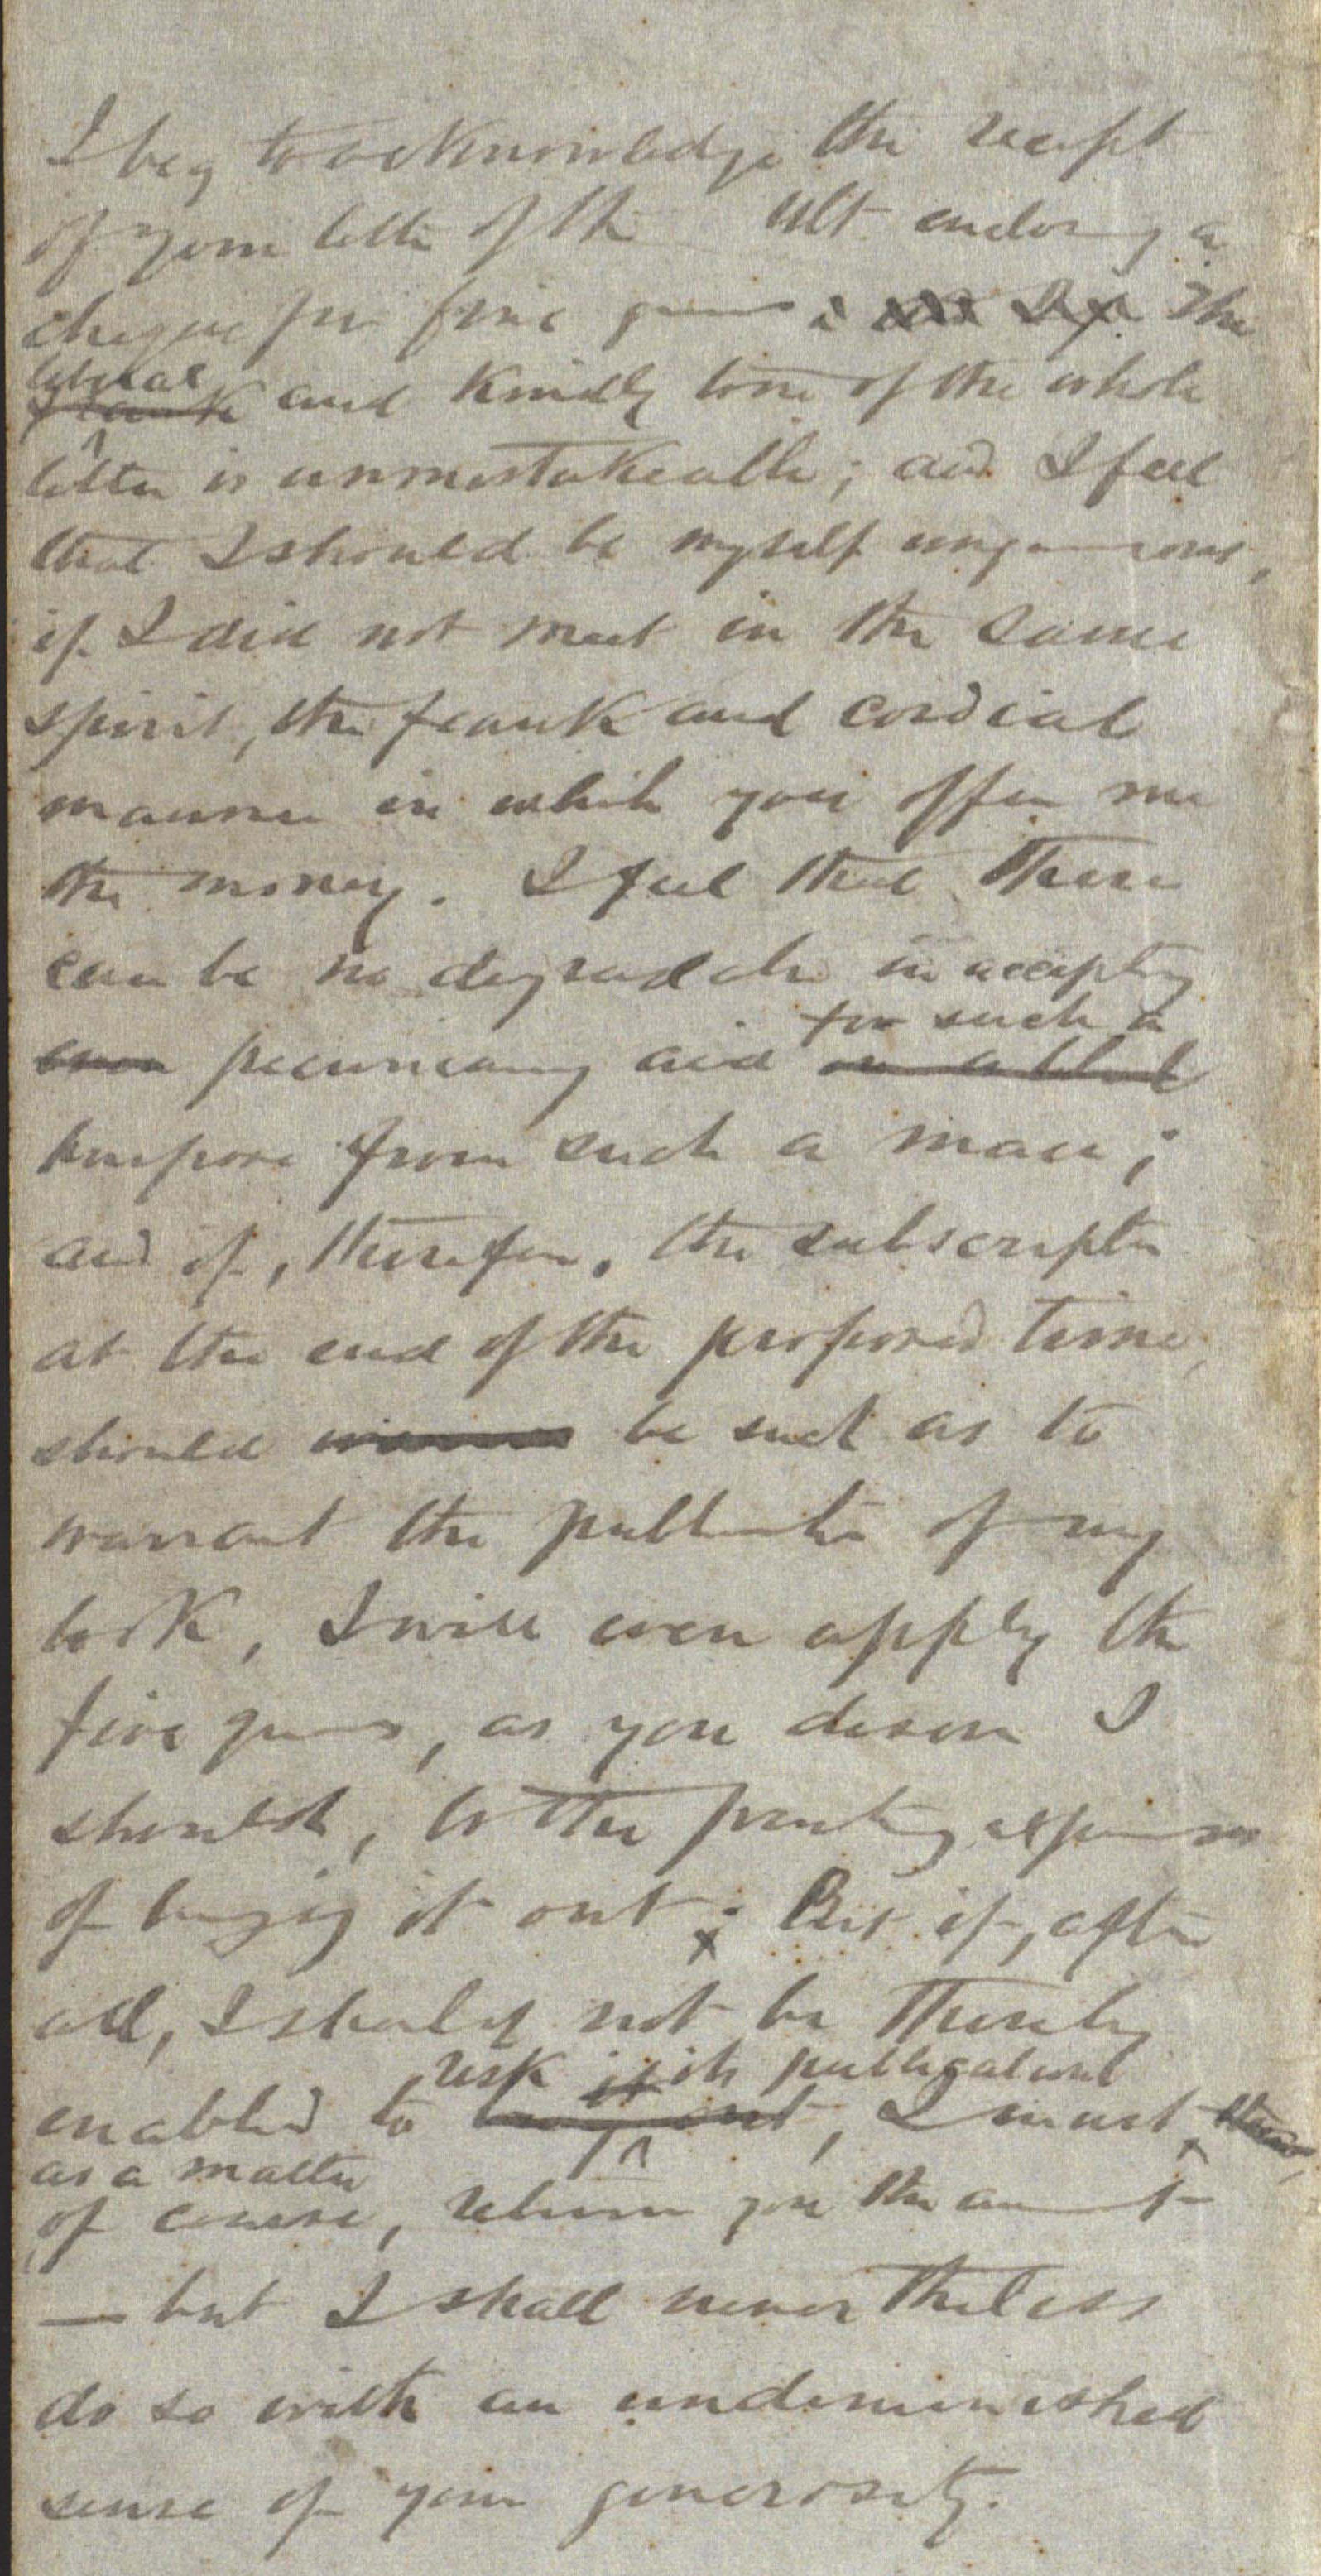 I beg to acknowledge the receipt
of your letter of the ult enclosing a
cheque for five guineas; The
liberal
frank and kindly tone of the whole
letter is unmistakeable; and I feel
that I should be myself ungenerous,
if I did not meet in the same
spirit, the frank and cordial
manner in which you offer me
the money. I feel that there
can be no degradation in accepting
for such a
even pecuniary aid
purpose from such a man;
and if, therefore, the subscription
at the end of the proposed time,
should be such as to
warrant the publication of my
book, I will even apply the
five guineas, as you desire I
should, to the printing expenses
of bringing it out; But if, after
all, I should not be thereby
risk it its publication
enabled to bring out, I must, then,
as a matter
of course, return you the amount
— but I shall nevertheless
do so with an undiminished
sense of your generosity.